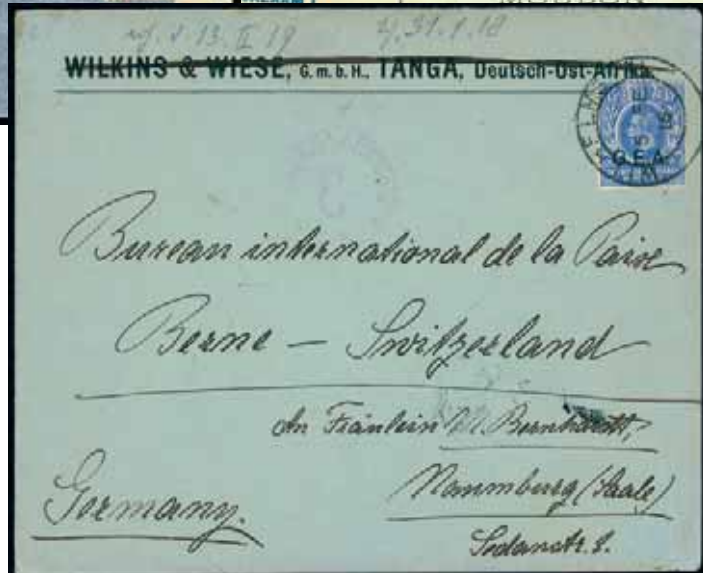 MOUDON
13. II 19
31.1.18
WILKINS & WIESE, G.m.b.H., TANGA, Deutsch-Ost-Afrika.
G.E.A.
3
Bureau international de la Paix
Berne – Switzerland
An Fräulein M. Bernhardt,
Naumburg (Saale)
Germany.
Sedanstr. 8.